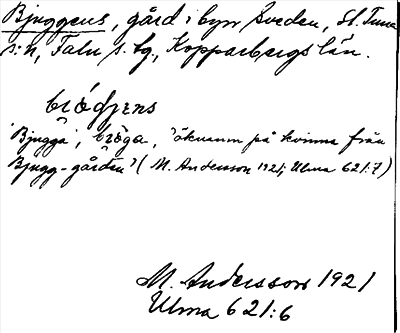 Bjuggens, gård i byn Sveden, St. Tuna
s:n, Falu s. bg., Kopparbergs län.
'Bjugga', "öknamn på kvinna från
Bjugg-gården" (M. Andersson 1921; Ulma 621:7)
M. Andersson 1921
Ulma 621:6